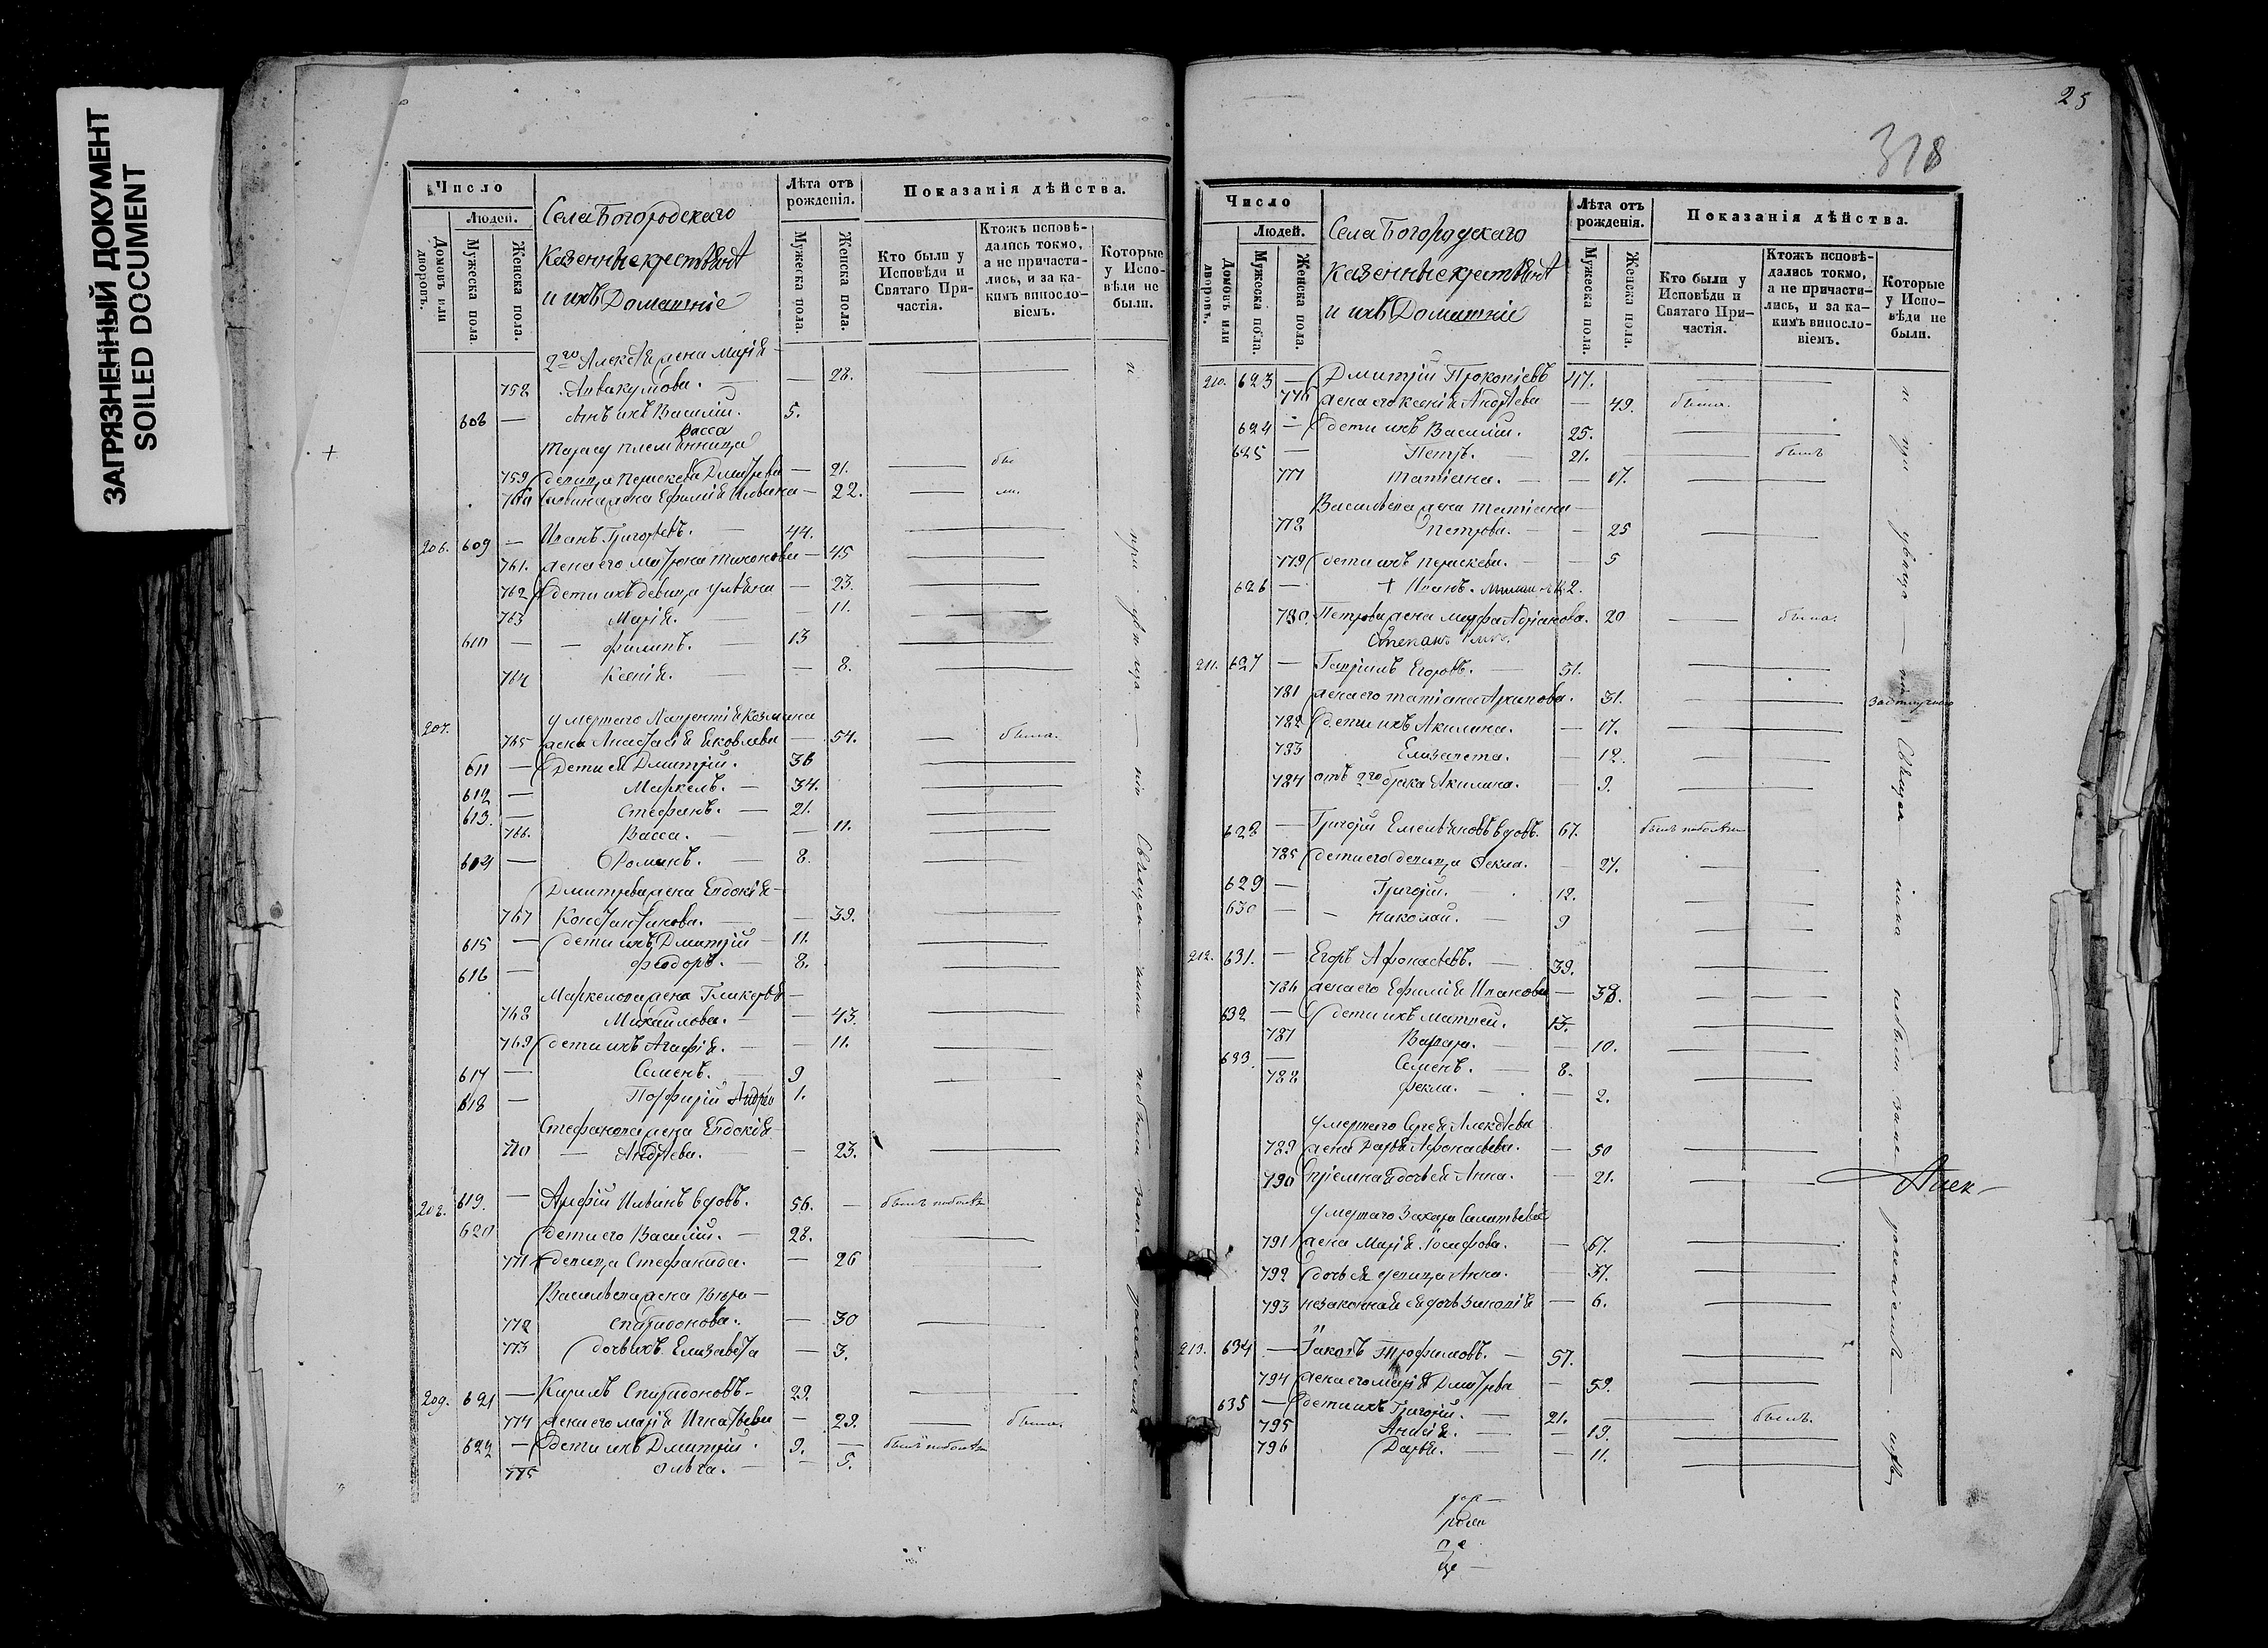 ЗАГРЯЗНЕННЫЙ ДОКУМЕНТ
SOILED DOCUMENT
Число
Людей.
Домовъ или дворовъ.
Мужеска пола.
Женска пола.
Села Богородскаго
казенные крестьяне
и ихъ Домашніе
Лѣта отъ рожденія.
Мужеска пола.
Женска пола.
Показанія дѣйства.
Кто были у Исповѣди и Святаго Причастія.
Ктожъ исповѣдались токмо, а не причастились, и за какимъ винословіемъ.
Которые у Исповѣди не были.
2го Алексѣя жена Марія
758 Аввакумова. — 28.
608 — сынъ ихъ Василій. 5.
Васса
племянница
759 девица Параскева Дмитрева — 21.
760 жена Ефимія — 22.
206. 609 — Иванъ Григорьевъ. 44.
761. жена его Матрона Тихонова — 45
762 дети ихъ девица Ульяна — 23.
763 Марія. — 11.
610 — Филипъ. 13
764 Ксенія. — 8.
207. умершаго Лаврентія Козмина
765 жена Анастасія Яковлева — 54. была.
611 — дети ея Дмитрій. 36
612 — Маркелъ. 34.
613. — Стефанъ. 21.
766. Васса. — 11.
614 — Романъ. 8.
Дмитрева жена Евдокія
767 Константинова. — 39.
615 — дети ихъ Дмитрій 11.
616 — Феодоръ. 8.
Маркелова жена Гликерія
768 Михайлова. — 43.
769 дети ихъ Агафія. — 11.
617 — Семенъ. 9
618 — Порфирій Андрей 1.
Стефанова жена Евдокія
770 Андреева. — 23.
208. 619. — Арефій Ильинъ вдовъ. 56. —
620 дети его Василій. 28.
771 девица Стефанида. — 26
Васильева жена Вѣра
772 Спиридонова. — 30
773 дочь ихъ Елизавета — 3.
209. 621 — Кирилъ Спиридоновъ 29.
774 жена его Марія Игнатьева — 29. была.
622 — дети ихъ Дмитрій. 9. —
775 Ольга. — 5.
25
318
Число
Людей.
Домовъ или дворовъ.
Мужеска пола.
Женска пола.
Села Богородскаго
казенные крестьяне
и ихъ Домашніе
Лѣта отъ рожденія.
Мужеска пола.
Женска пола.
Показанія дѣйства.
Кто были у Исповѣди и Святаго Причастія.
Ктожъ исповѣдались токмо, а не причастились, и за какимъ винословіемъ.
Которые у Исповѣди не были.
210. 623 — Дмитрій Прокопіевъ 47.
776 жена его Ксенія Андреева — 49. была.
624 — дети ихъ Василій. 25.
625 — Петръ. 21. былъ
777 Татіана. — 17.
Васильева жена Татіана
778 Петрова. — 25
779 дети ихъ Параскева. — 5
626 — + Иванъ. 2.
780. Петрова жена Марфа Адрианова. 20 была.
Степанъ
211. 627 — Гавріилъ Егоровъ. 51.
781 жена его Татіана Архипова. 31.
782 дети ихъ Акилина. — 17.
783 Елизавета. — 12.
784 отъ 2го брака Акилина. — 9.
628 — Григорій Емельяновъ вдовъ. 67.
785 дети его девица Фекла. — 27.
629 — Григорій. 12.
630 — Николай. 9
212. 631. — Егоръ Афонасьевъ. 39.
786 жена его Ефимія Иванова — 38.
632 — дети ихъ Матвей. 13.
787 Варвара. — 10.
633. — Семенъ. 8.
788 Фекла. — 2.
умершаго Сергея Алексеева
789 жена Дарья Афонасьева. — 50
790 дочь ея Анна. — 21.
умершаго Захара Савельева
791 жена Марія Іосифова. — 67.
792 дочь ея девица Анна. — 37.
793 незаконная ея дочь Зиновія — 6.
213. 634 — Іаковъ Трофимовъ. 57.
794 жена его Марія Дмитрева — 59.
635 — дети ихъ Григорій. 21. былъ.
795 Анисія. — 19.
796 Дарья. — 11.